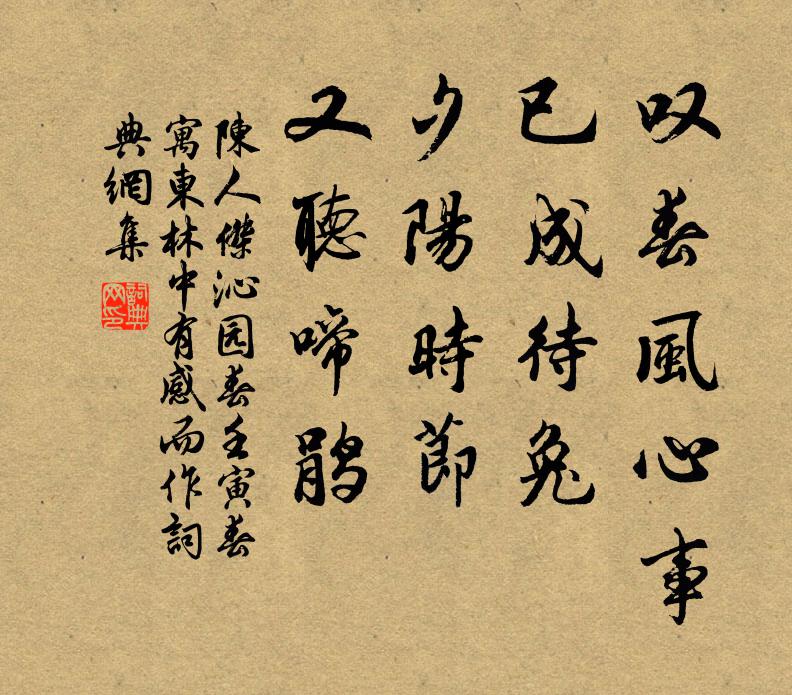 叹春風心事
已成待兔
夕陽時節
又聽啼鹃
陳人傑沁园春壬寅春
寓東林中有感而作詞
典網集
詞典网印